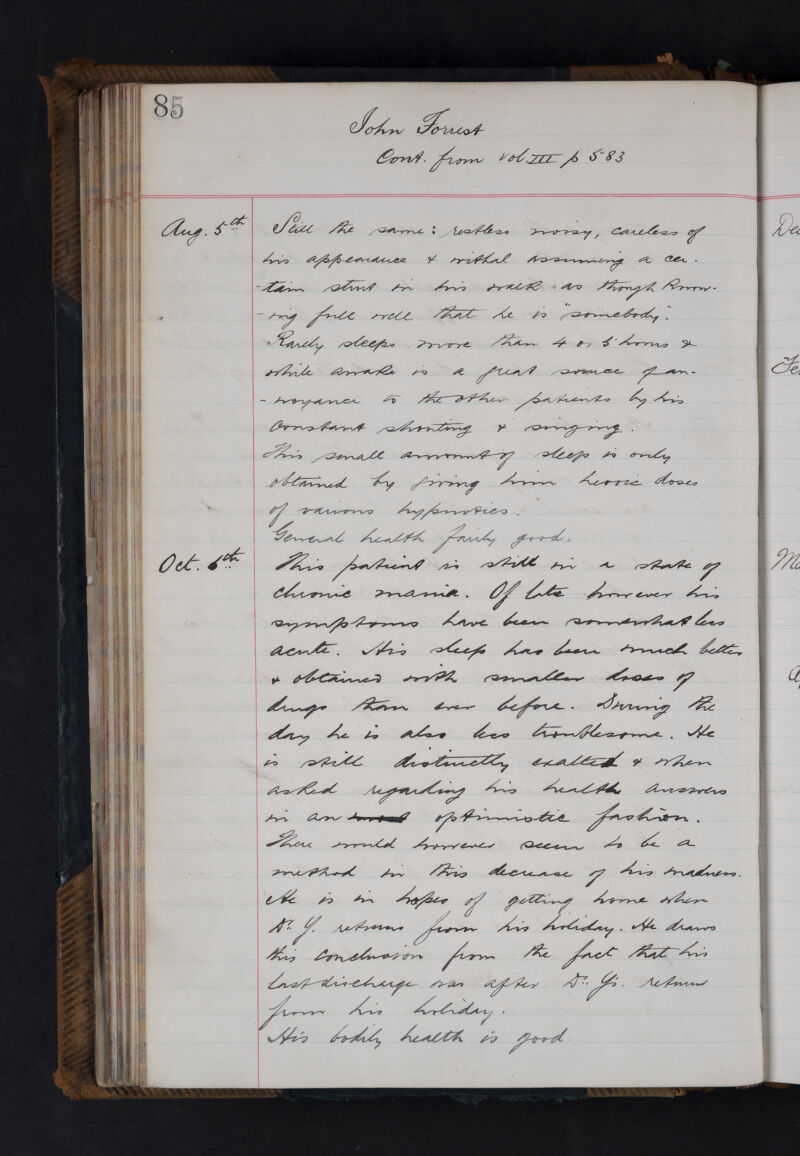 85
John Forrest
Cont. from Vol. III p 583
Aug. 5th Still the same: restless noisy, careless of
his appearance & withal assuming a cer-
-tain strut in his walk as though know-
-ing full well that he is "somebody".
Rarely sleeps more than 4 or 5 hours &
while awake is a great source of an-
-noyance to the other patients by his
constant shouting & singing.
This small amount of sleep is only
obtained by giving him heroic doses
of various hypnotics.
General health fairly good.
Oct. 6th This patient is still in a state of
chronic mania. Of late however his
symptoms have been somewhat less
acute. His sleep has been much better
& obtained with smaller doses of
drugs than ever before. During the
day he is also less troublesome. He
is still distinctly exalted & when
asked regarding his health answers
in an optimistic fashion.
There would however seem to be a
method in this decrease of his madness.
He is in hopes of getting home when
Dr. Y. returns from his holiday. He draws
this conclusion from the fact that his
last discharge was after Dr. Y's. return
from his holiday.
His bodily health is good.